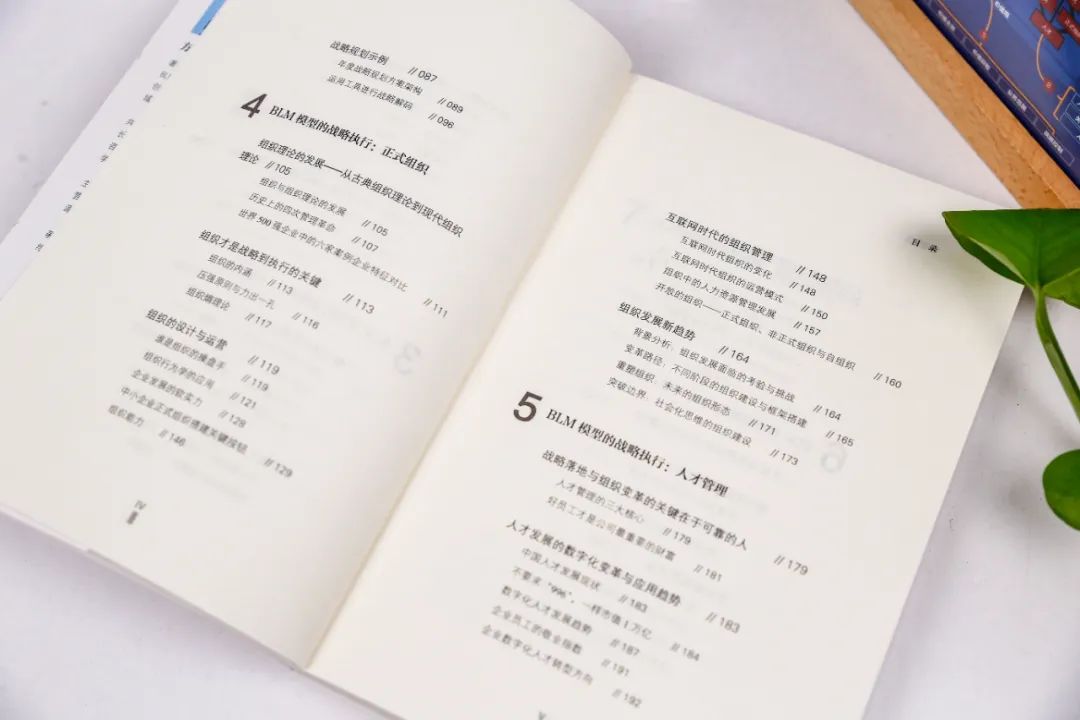 战略规划示例 //087
年度战略规划方案架构 //089
运用工具进行战略解码 //096
4 BLM 模型的战略执行：正式组织
组织理论的发展——从古典组织理论到现代组织
理论 //105
组织与组织理论的发展 //105
历史上的四次管理革命 //107
世界 500 强企业中的六家案例企业特征对比 //111
组织才是战略到执行的关键 //113
组织的内涵 //113
压强原则与力出一孔 //116
组织熵理论 //117
组织的设计与运营 //119
谁是组织的操盘手 //119
组织行为学的应用 //121
企业发展的软实力 //128
中小企业正式组织搭建关键按钮 //129
组织能力 //146
IV
目 录
互联网时代的组织管理 //148
互联网时代组织的变化 //148
互联网时代组织的运营模式 //150
组织中的人力资源管理发展 //157
开放的组织——正式组织、非正式组织与自组织 //160
组织发展新趋势 //164
背景分析：组织发展面临的考验与挑战 //164
变革路径：不同阶段的组织建设与框架搭建 //165
重塑组织：未来的组织形态 //171
突破边界：社会化思维的组织建设 //173
5 BLM 模型的战略执行：人才管理
战略落地与组织变革的关键在于可靠的人 //179
人才管理的三大核心 //179
好员工才是公司最重要的财富 //181
人才发展的数字化变革与应用趋势 //183
中国人才发展现状 //183
不要求“996”，一样市值 1 万亿 //184
数字化人才发展趋势 //187
企业员工的敬业指数 //191
企业数字化人才转型方向 //192
V